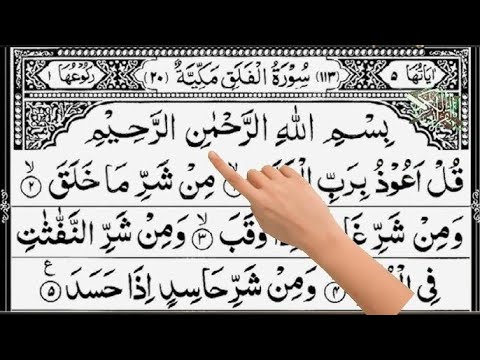 اٰیَاتُهَا ۵ (۱۱۳) سُوْرَةُ الْفَلَقِ مَكِّیَّةٌ (۲۰) رُكُوْعُهَا ۱
بِسْمِ اللّٰهِ الرَّحْمٰنِ الرَّحِیْمِ
قُلْ اَعُوْذُ بِرَبِّ مِنْ شَرِّ مَا خَلَقَ ۙ﴿۲﴾
وَمِنْ شَرِّ وَقَبَ ۙ﴿۳﴾ وَمِنْ شَرِّ النَّفّٰثٰتِ
فِی ﴿۴﴾ وَمِنْ شَرِّ حَاسِدٍ اِذَا حَسَدَ ﴿۵﴾ ع